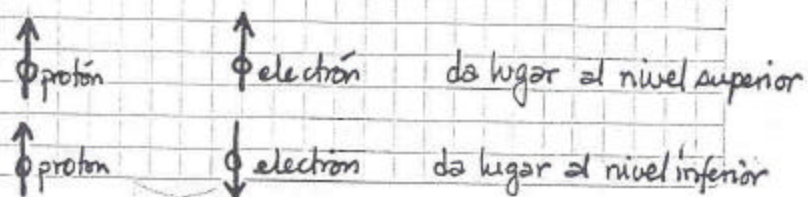 protón electrón da lugar al nivel superior
proton electrón da lugar al nivel inferior